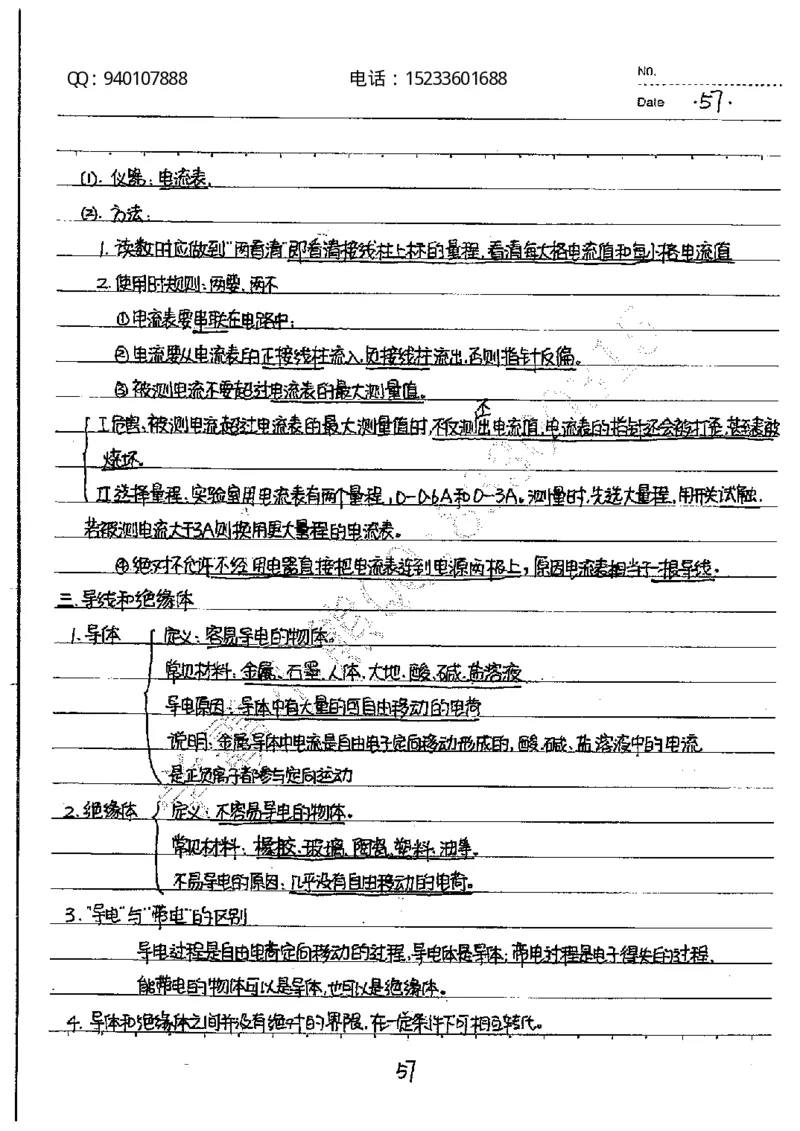 QQ：940107888 电话：15233601688 No.
Date ·57·
(1). 仪器：电流表.
(2). 方法：
1. 读数时应做到"两看清"即看清接线柱上标的量程，看清每大格电流值和每小格电流值
2. 使用时规则：两要、两不
①电流表要串联在电路中；
②电流要从电流表的正接线柱流入，负接线柱流出，否则指针反偏。
③被测电流不要超过电流表的最大测量值。
I 危害、被测电流超过电流表的最大测量值时，不仅测不出电流值，电流表的指针还会被打歪，甚至表被
烧坏。
II 选择量程、实验室用电流表有两个量程，0-0.6A和0-3A。测量时，先选大量程，用开关试触，
若被测电流大于3A则换用更大量程的电流表。
④绝对不允许不经用电器直接把电流表连到电源两极上，原因电流表相当于一根导线。
三.导线和绝缘体
1.导体 定义：容易导电的物体。
常见材料：金属、石墨、人体、大地、酸、碱、盐溶液
导电原因：导体中有大量的可自由移动的电荷
说明：金属导体中电流是自由电子定向移动形成的，酸、碱、盐溶液中的电流
是正负离子都参与定向运动
2.绝缘体 定义：不容易导电的物体。
常见材料：橡胶、玻璃、陶瓷、塑料、油等。
不易导电的原因：几乎没有自由移动的电荷。
3."导电"与"带电"的区别
导电过程是自由电荷定向移动的过程，导电体是导体；带电过程是电子得失的过程，
能带电的物体可以是导体，也可以是绝缘体。
4. 导体和绝缘体之间并没有绝对的界限，在一定条件下可相互转化。
57